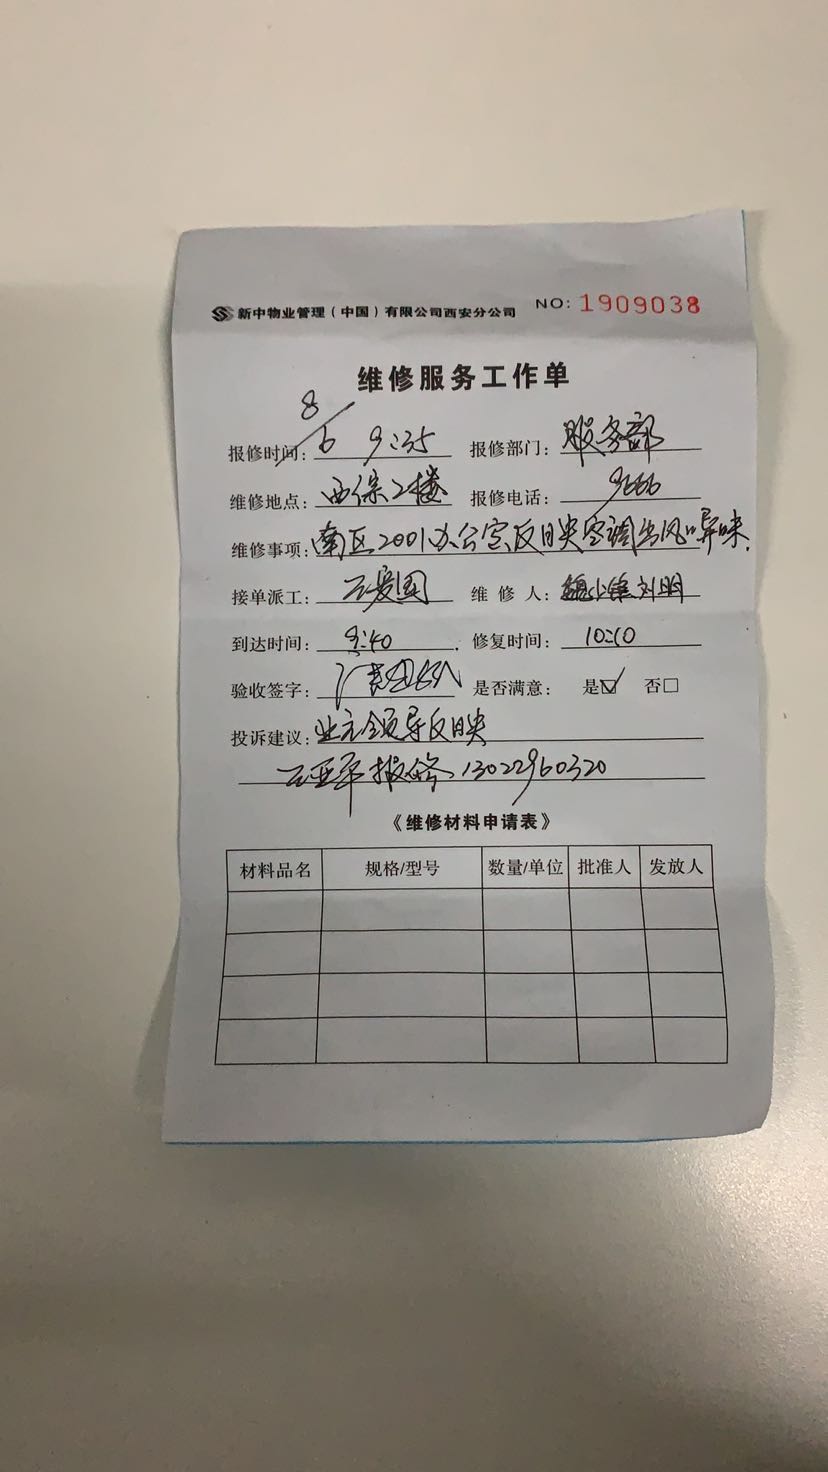 新中物业管理(中国)有限公司西安分公司 NO: 1909038
维修服务工作单
报修时间: 8/6 9:35 报修部门: 服务部
维修地点: 西综2楼 报修电话: 9666
维修事项: 南区2001办公室反映空调出风口异味.
接单派工: 王爱国 维修人: 刘明
到达时间: 9:40 修复时间: 10:10
验收签字: 是否满意: 是☑ 否□
投诉建议: 业主领导反映
王亚军报修 13022960320
《维修材料申请表》
材料品名 规格/型号 数量/单位 批准人 发放人